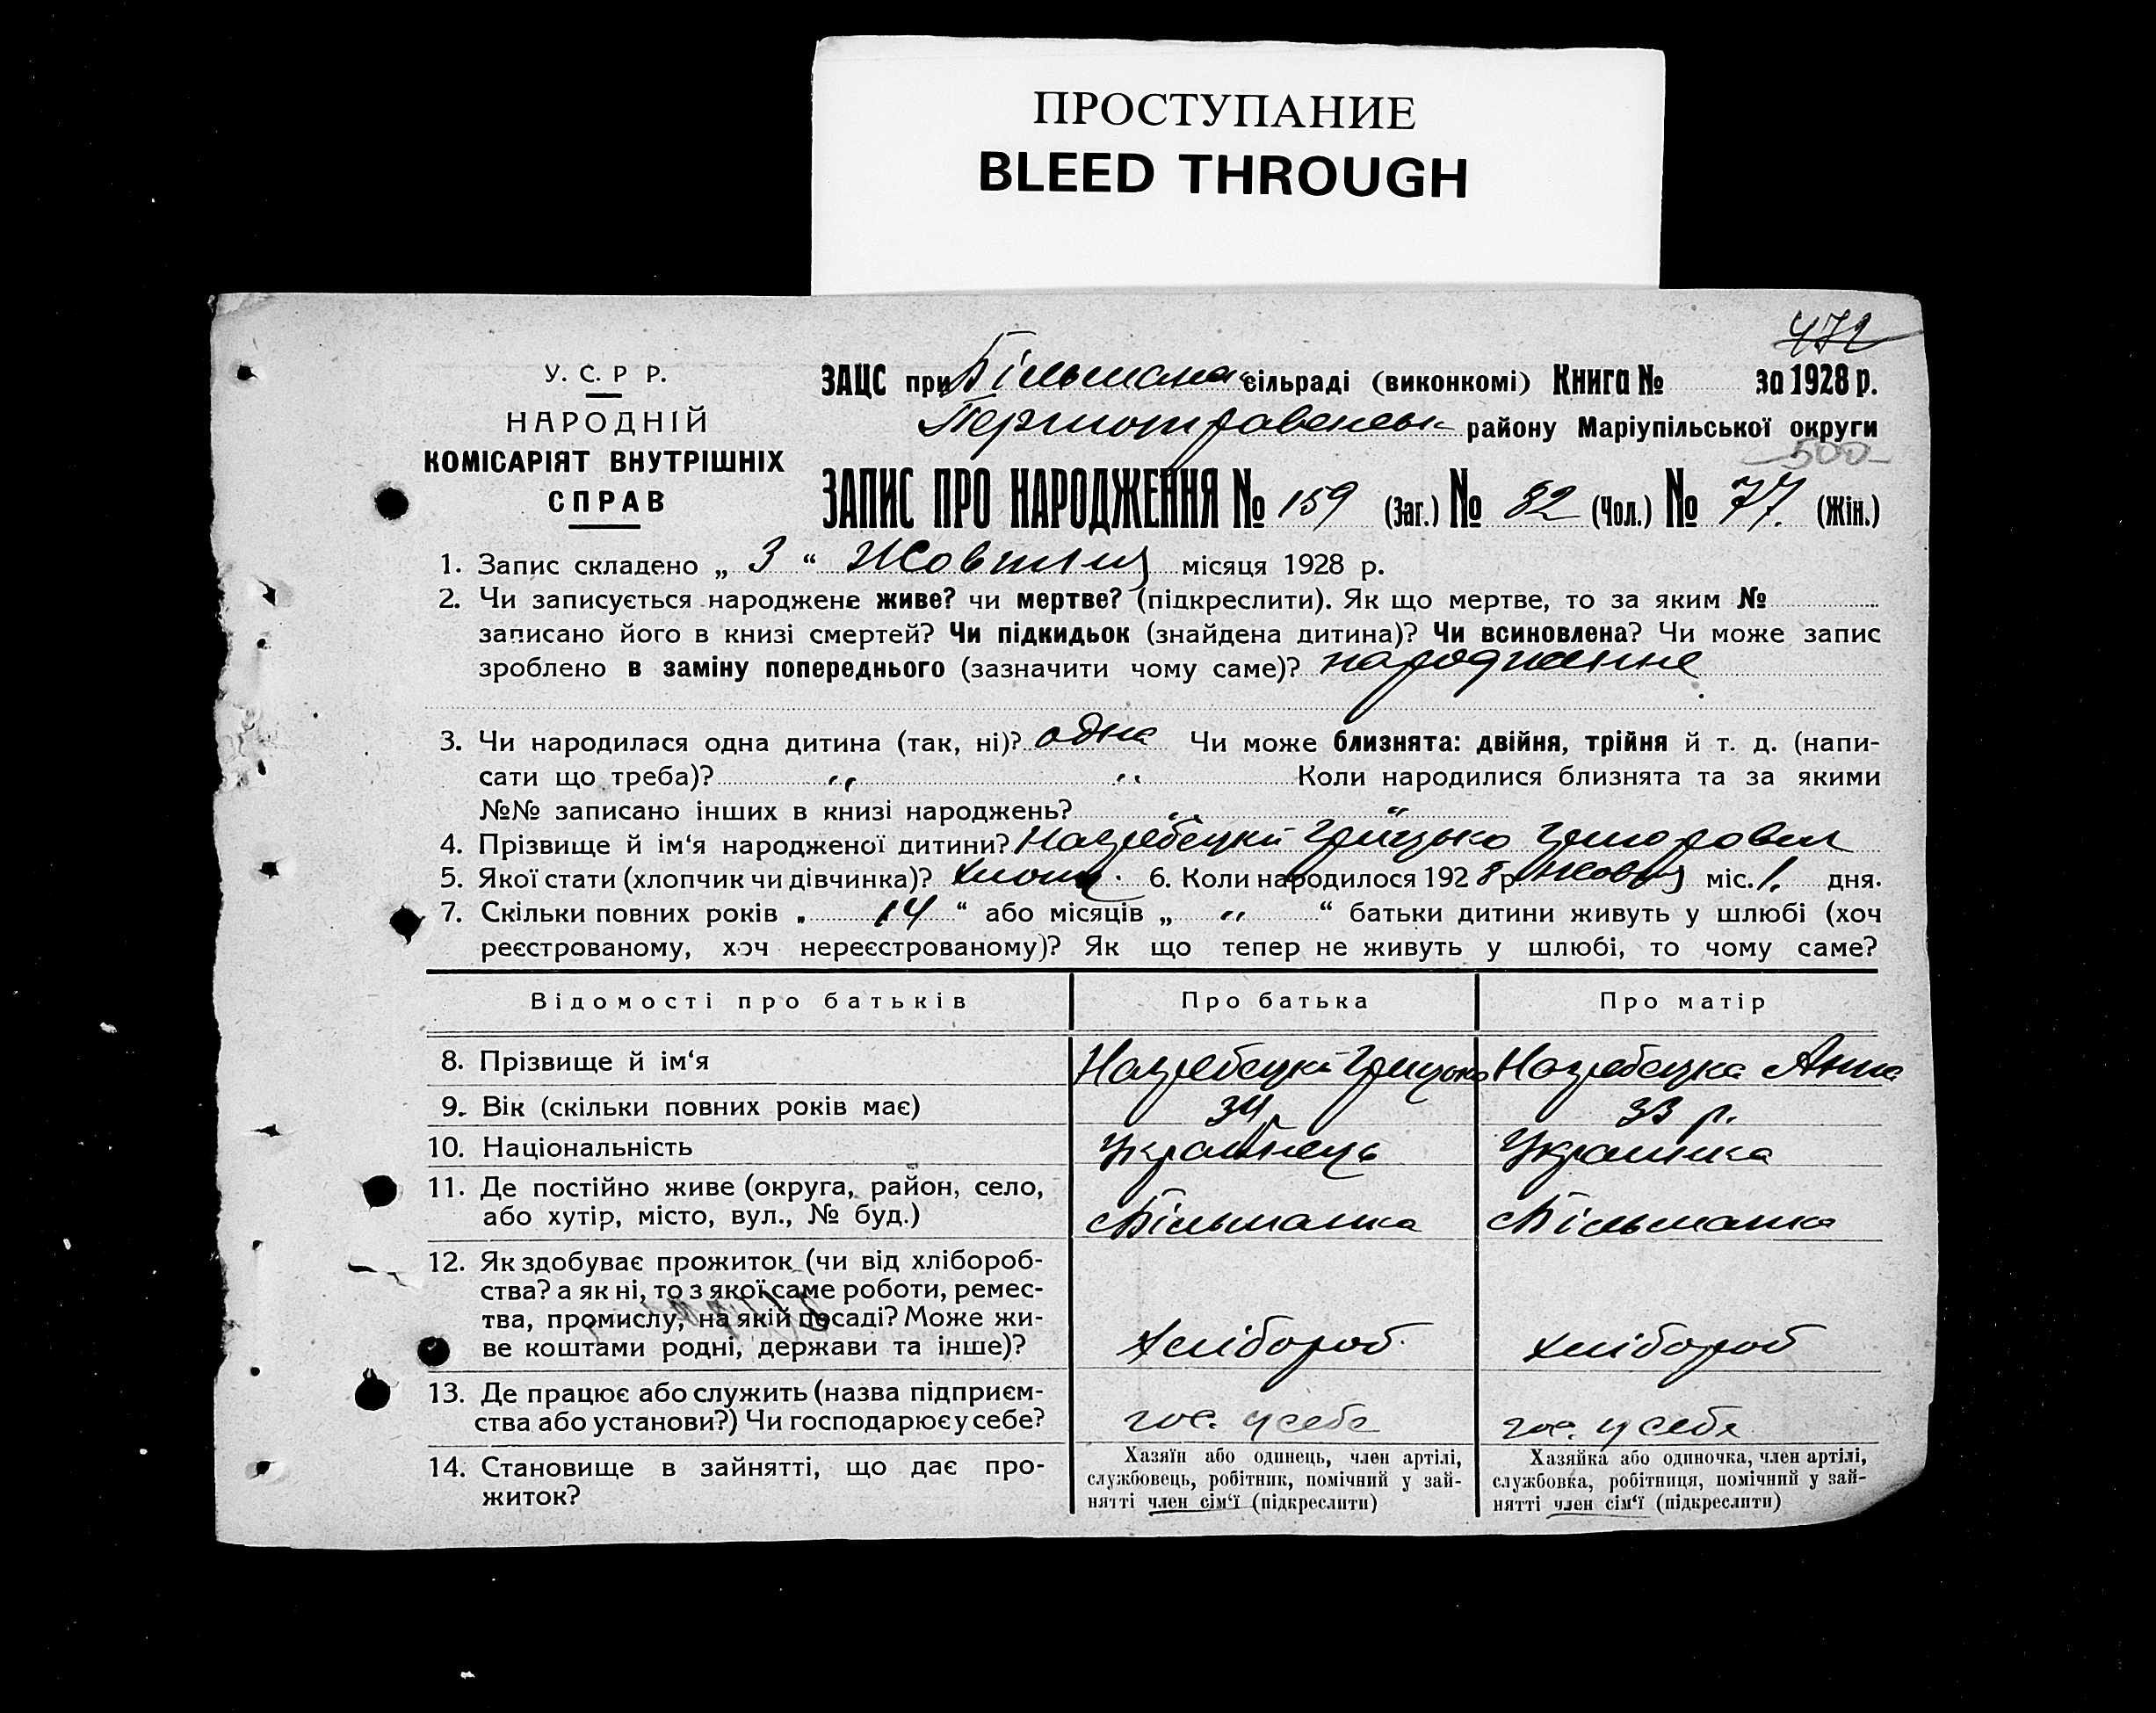 ПРОСТУПАНИЕ
BLEED THROUGH
472
У. С. Р Р.
НАРОДНІЙ
КОМІСАРІЯТ ВНУТРІШНІХ
СПРАВ
ЗАЦС при Більманка сільраді (виконкомі) Книга № за 1928 р.
Першотравенськ району Маріупільської округи
500
ЗАПИС ПРО НАРОДЖЕННЯ № 159 (Заг.) № 82 (Чол.) № 77. (Жін.)
1. Запис складено „ 3 “ Жовтня місяця 1928 р.
2. Чи записується народжене живе? чи мертве? (підкреслити). Як що мертве, то за яким №
записано його в книзі смертей? Чи підкидьок (знайдена дитина)? Чи всиновлена? Чи може запис
зроблено в заміну попереднього (зазначити чому саме)? народження
3. Чи народилася одна дитина (так, ні)? одна Чи може близнята: двійня, трійня й т. д. (напи-
сати що треба)? „ „ Коли народилися близнята та за якими
№№ записано інших в книзі народжень? „ „
4. Прізвище й ім‘я народженої дитини? Нагребецкий Грицько Григорович
5. Якої стати (хлопчик чи дівчинка)? хлопч. 6. Коли народилося 1928 р. Жовтя міс. 1. дня.
7. Скільки повних років „ 14 “ або місяців „ „ “ батьки дитини живуть у шлюбі (хоч
реєстрованому, хоч нереєстрованому)? Як що тепер не живуть у шлюбі, то чому саме?
Відомості про батьків Про батька Про матір
8. Прізвище й ім‘я Нагребецкий Грицько Нагребецка Анна
9. Вік (скільки повних років має) 34 р. 33 р.
10. Національність Українець Украинка
11. Де постійно живе (округа, район, село,
або хутір, місто, вул., № буд.) Більманка Більманка
12. Як здобуває прожиток (чи від хлібороб-
ства? а як ні, то з якої саме роботи, ремес-
тва, промислу, на якій посаді? Може жи-
ве коштами родні, держави та інше)? Хлібороб хлібороб
13. Де працює або служить (назва підприєм-
ства або установи?) Чи господарює у себе? гос. у себе гос. у себе
14. Становище в зайнятті, що дає про-
житок?
Хазяїн або одинець, член артілі,
службовець, робітник, помічний у зай-
нятті член сім‘ї (підкреслити)
Хазяйка або одиночка, член артілі,
службовка, робітниця, помічний у зай-
нятті член сім‘ї (підкреслити)